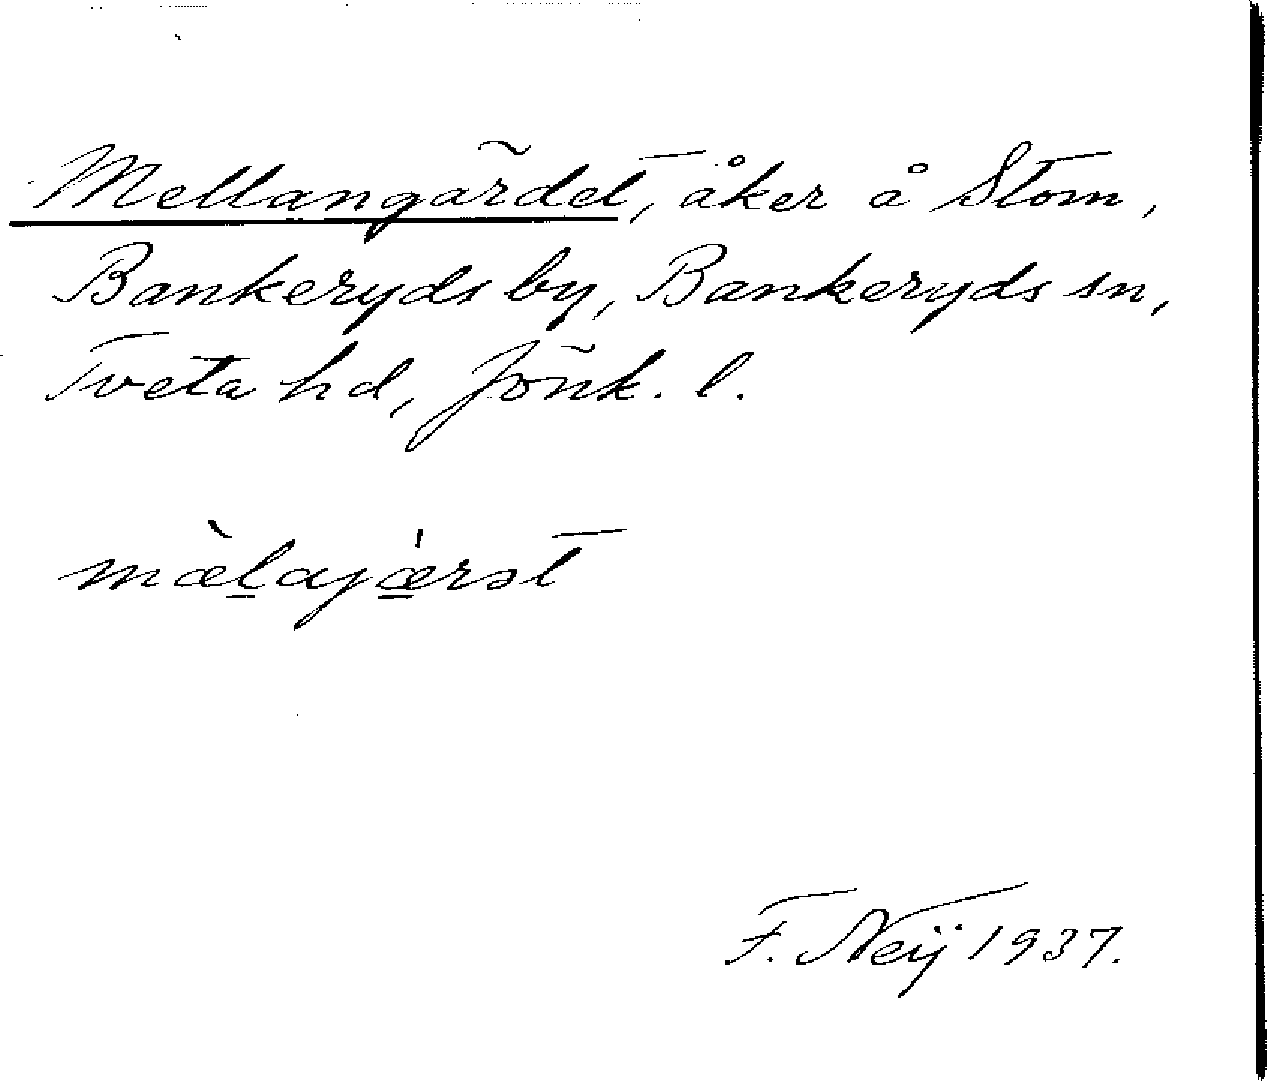 Mellangärdet, åker å Stom,
Bankeryds by, Bankeryds sn,
Tveta hd, Jönk. l.
mæ̀l̲ajæ̲̍rət
F. Neij 1937.